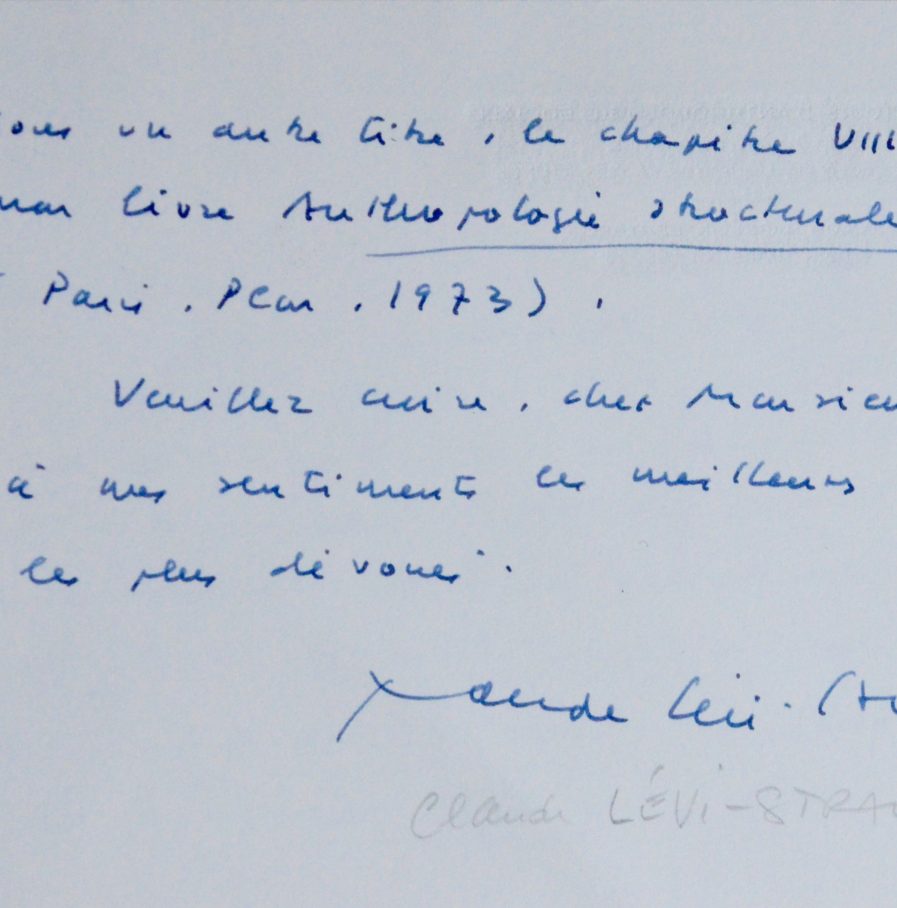 sous un autre titre, le chapitre VIII
mon livre Anthropologie structurale
(Paris, Plon, 1973).
Veuillez croire, cher Monsieu
à mes sentiments les meilleurs
les plus dévoués.
Claude Lévi-St
Claude LÉVI-STRAU